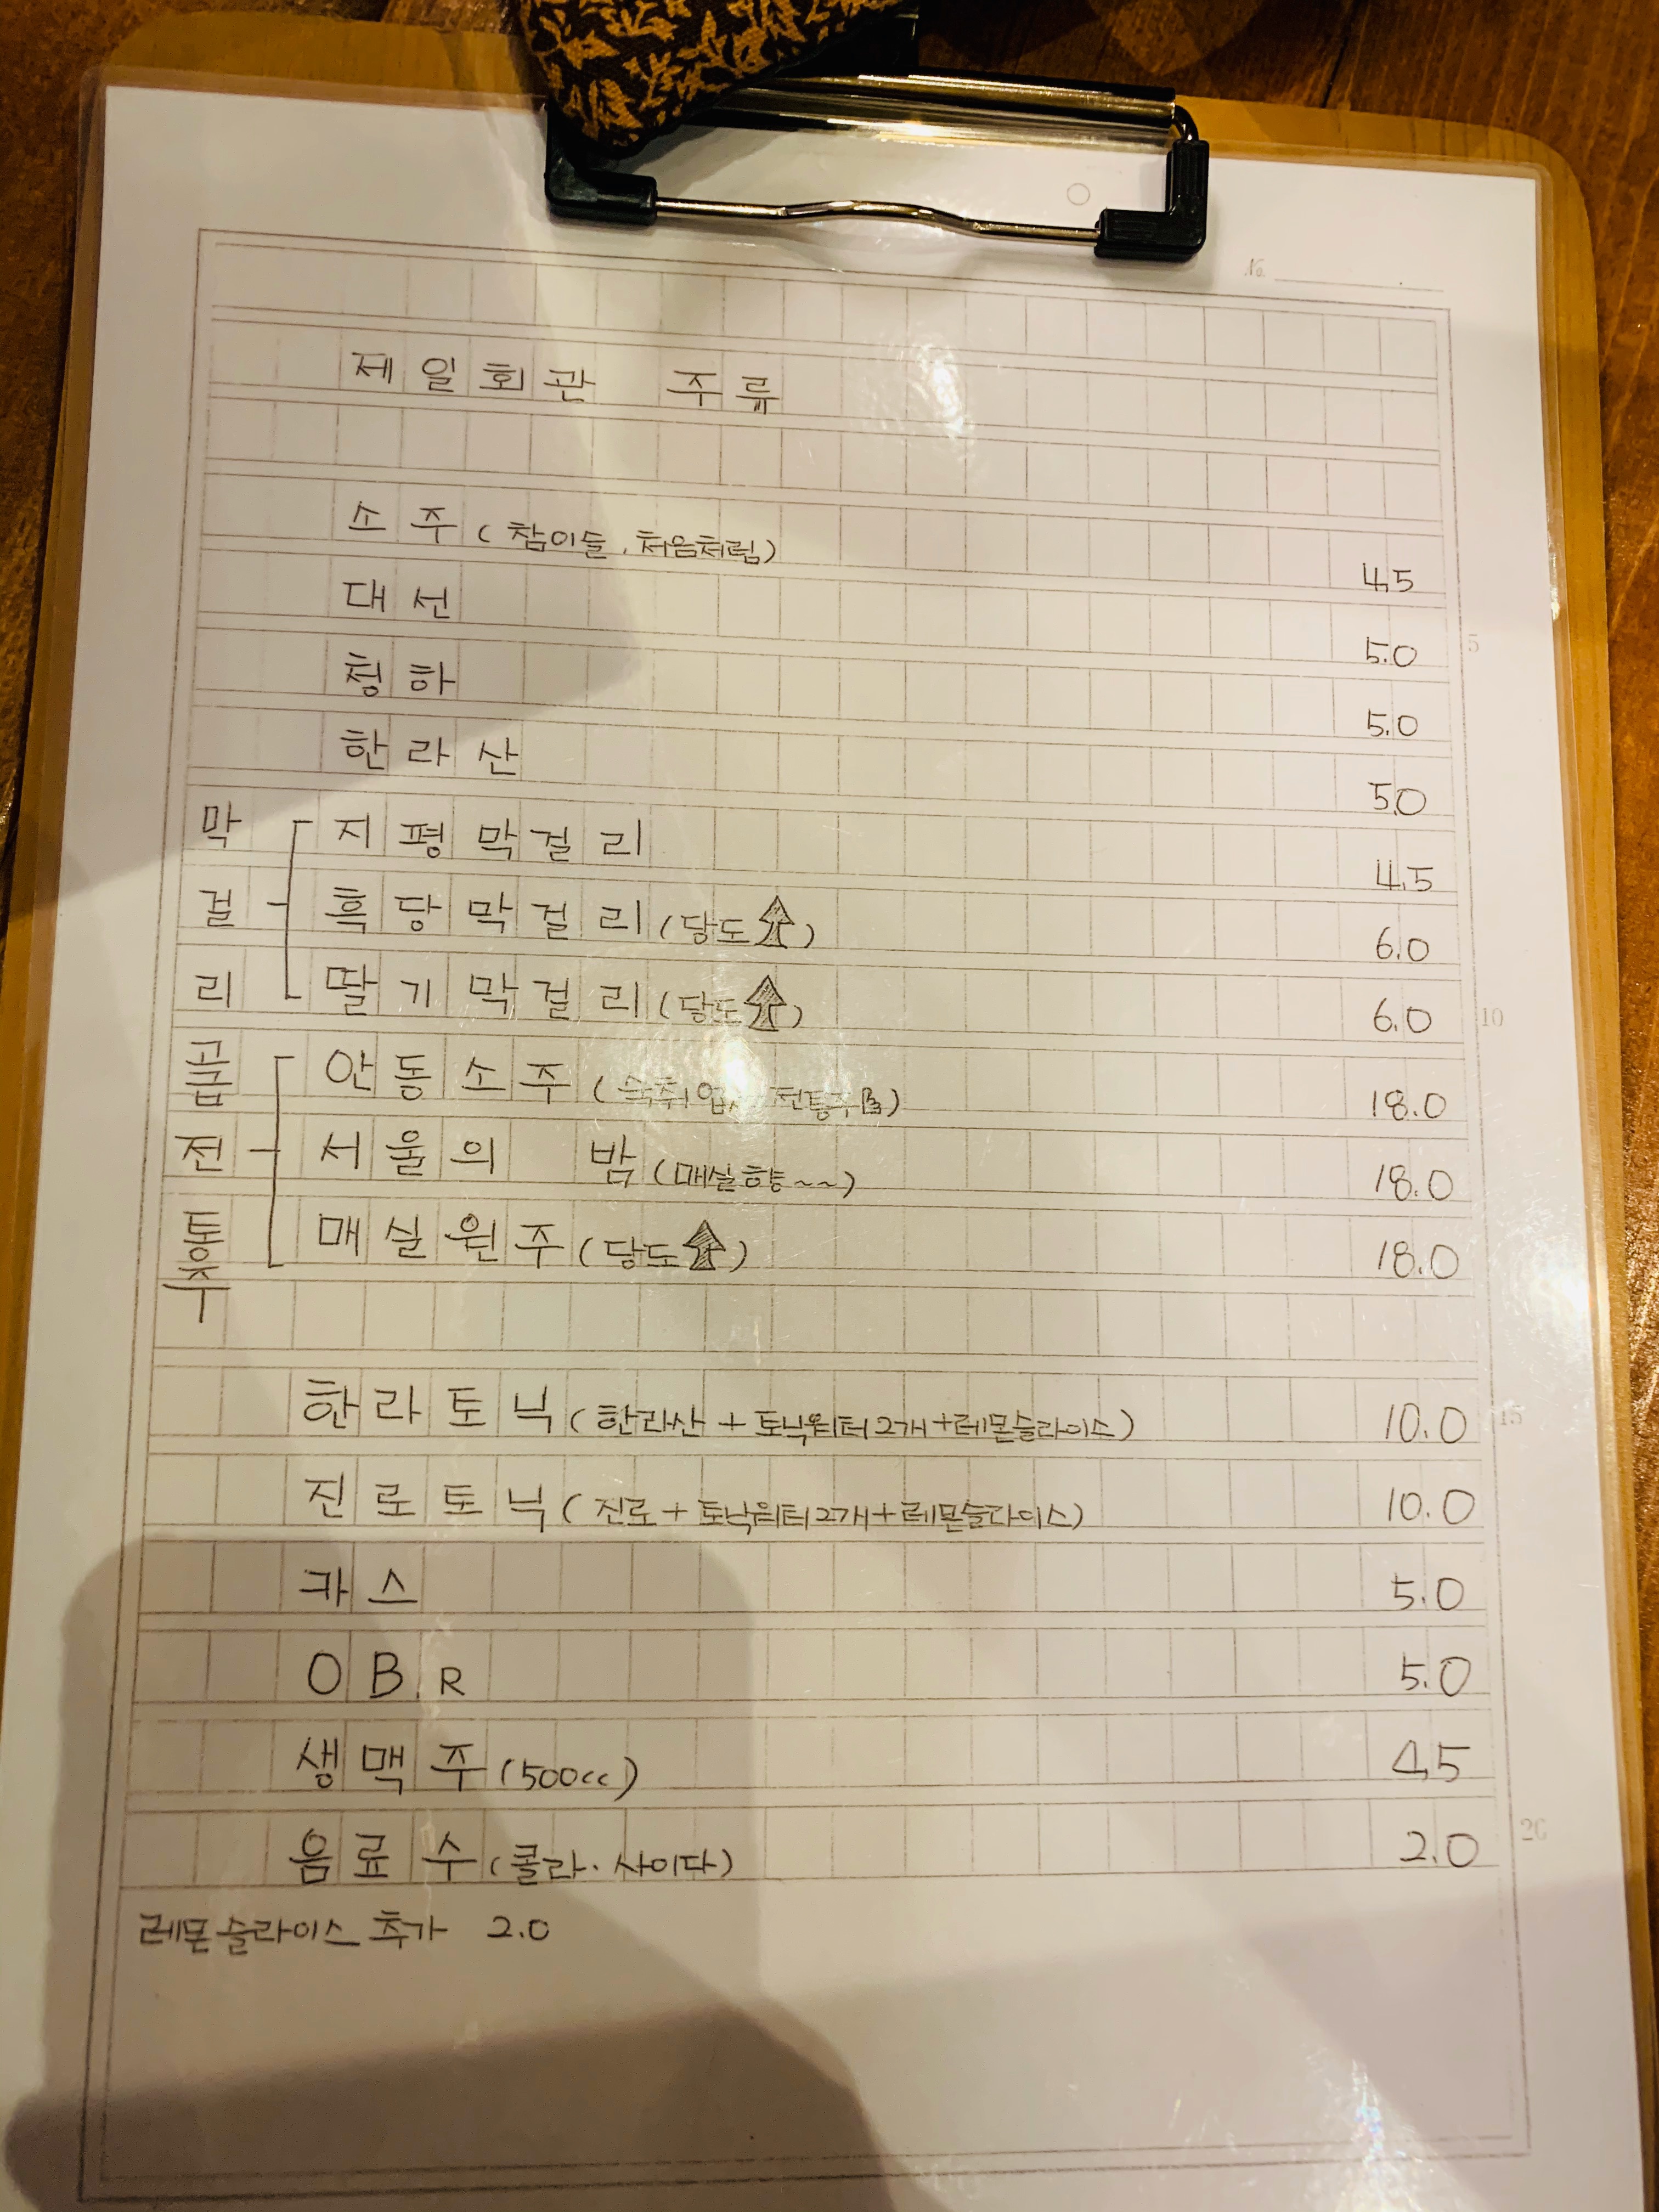 No.
제일회관 주류
소주 (참이슬, 처음처럼) 4.5
대선 5.0
청하 5.0
한라산 5.0
막걸리
지평막걸리 4.5
흑당막걸리 (당도↑) 6.0
딸기막걸리 (당도↑) 6.0
고급전통주
안동소주 (숙취 전통주) 18.0
서울의 밤 (매실향~~) 18.0
매실원주 (당도↑) 18.0
한라토닉 (한라산 + 토닉워터2개+레몬슬라이스) 10.0
진로토닉 (진로+토닉워터2개+레몬슬라이스) 10.0
카스 5.0
OB.R 5.0
생맥주 (500cc) 4.5
음료수 (콜라·사이다) 2.0
레몬슬라이스 추가 2.0
5
10
15
20